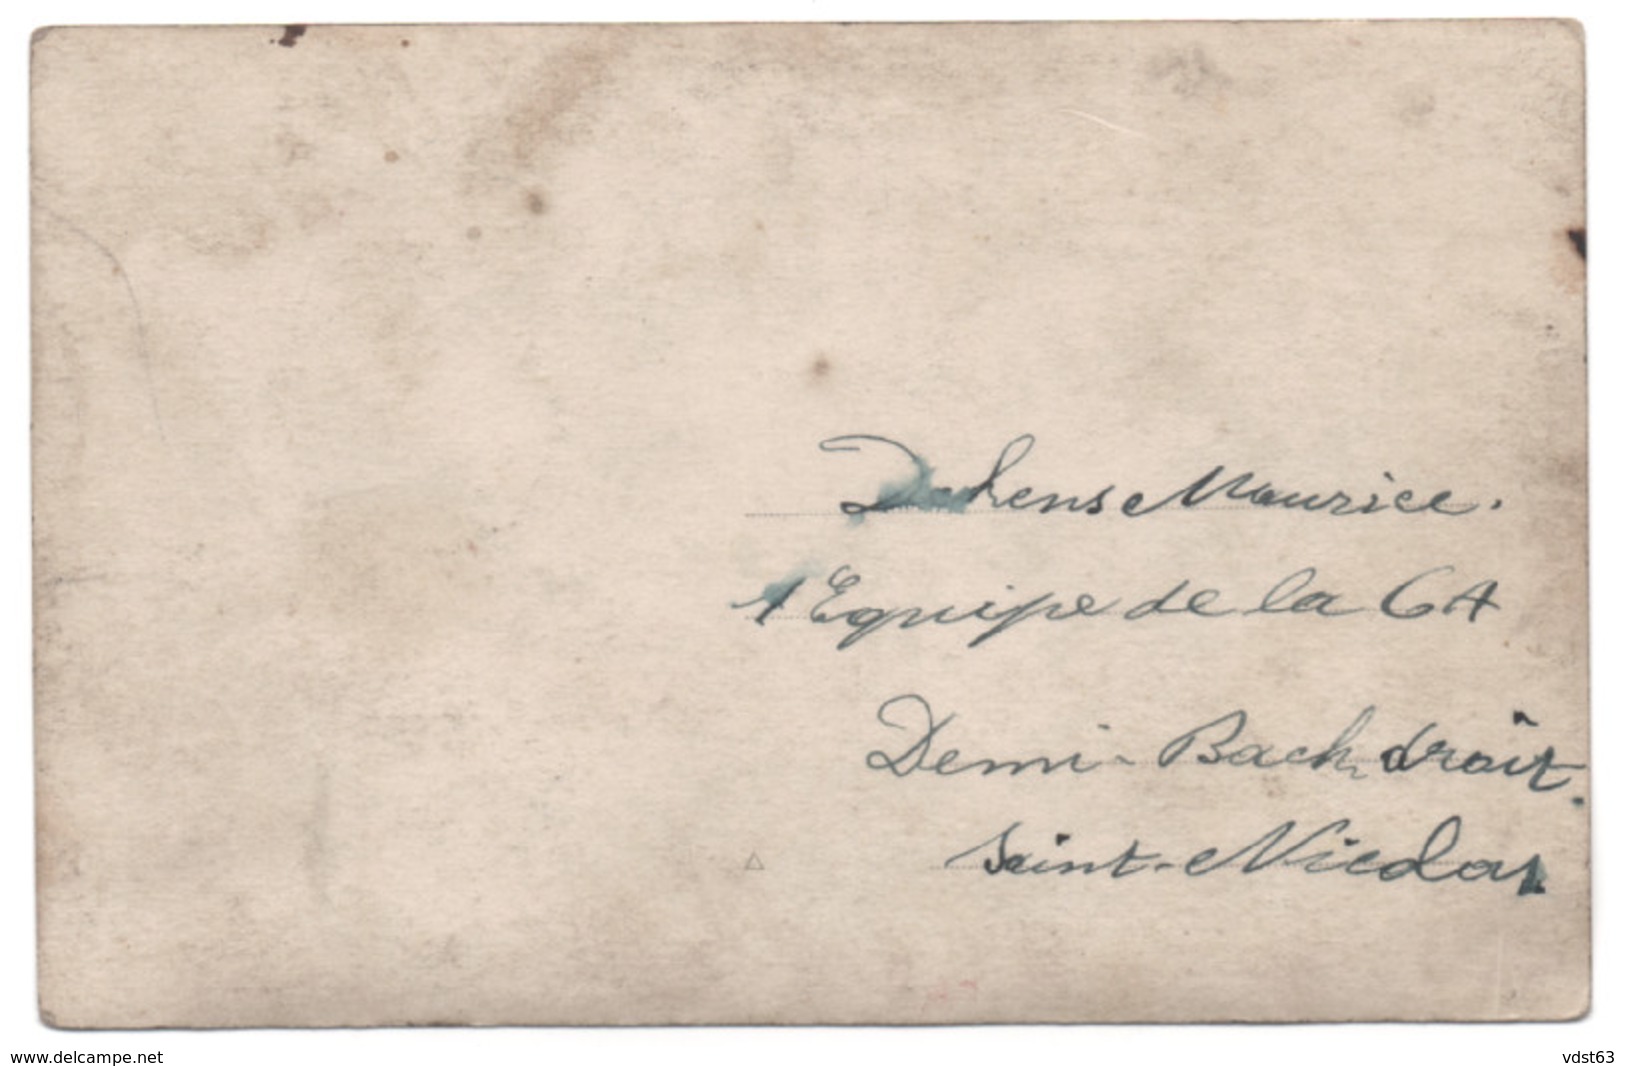 Dehens Maurice.
1 Equipe de la CA
Demi-Back droit.
Saint-Nicolas
www.delcampe.net
vdst63